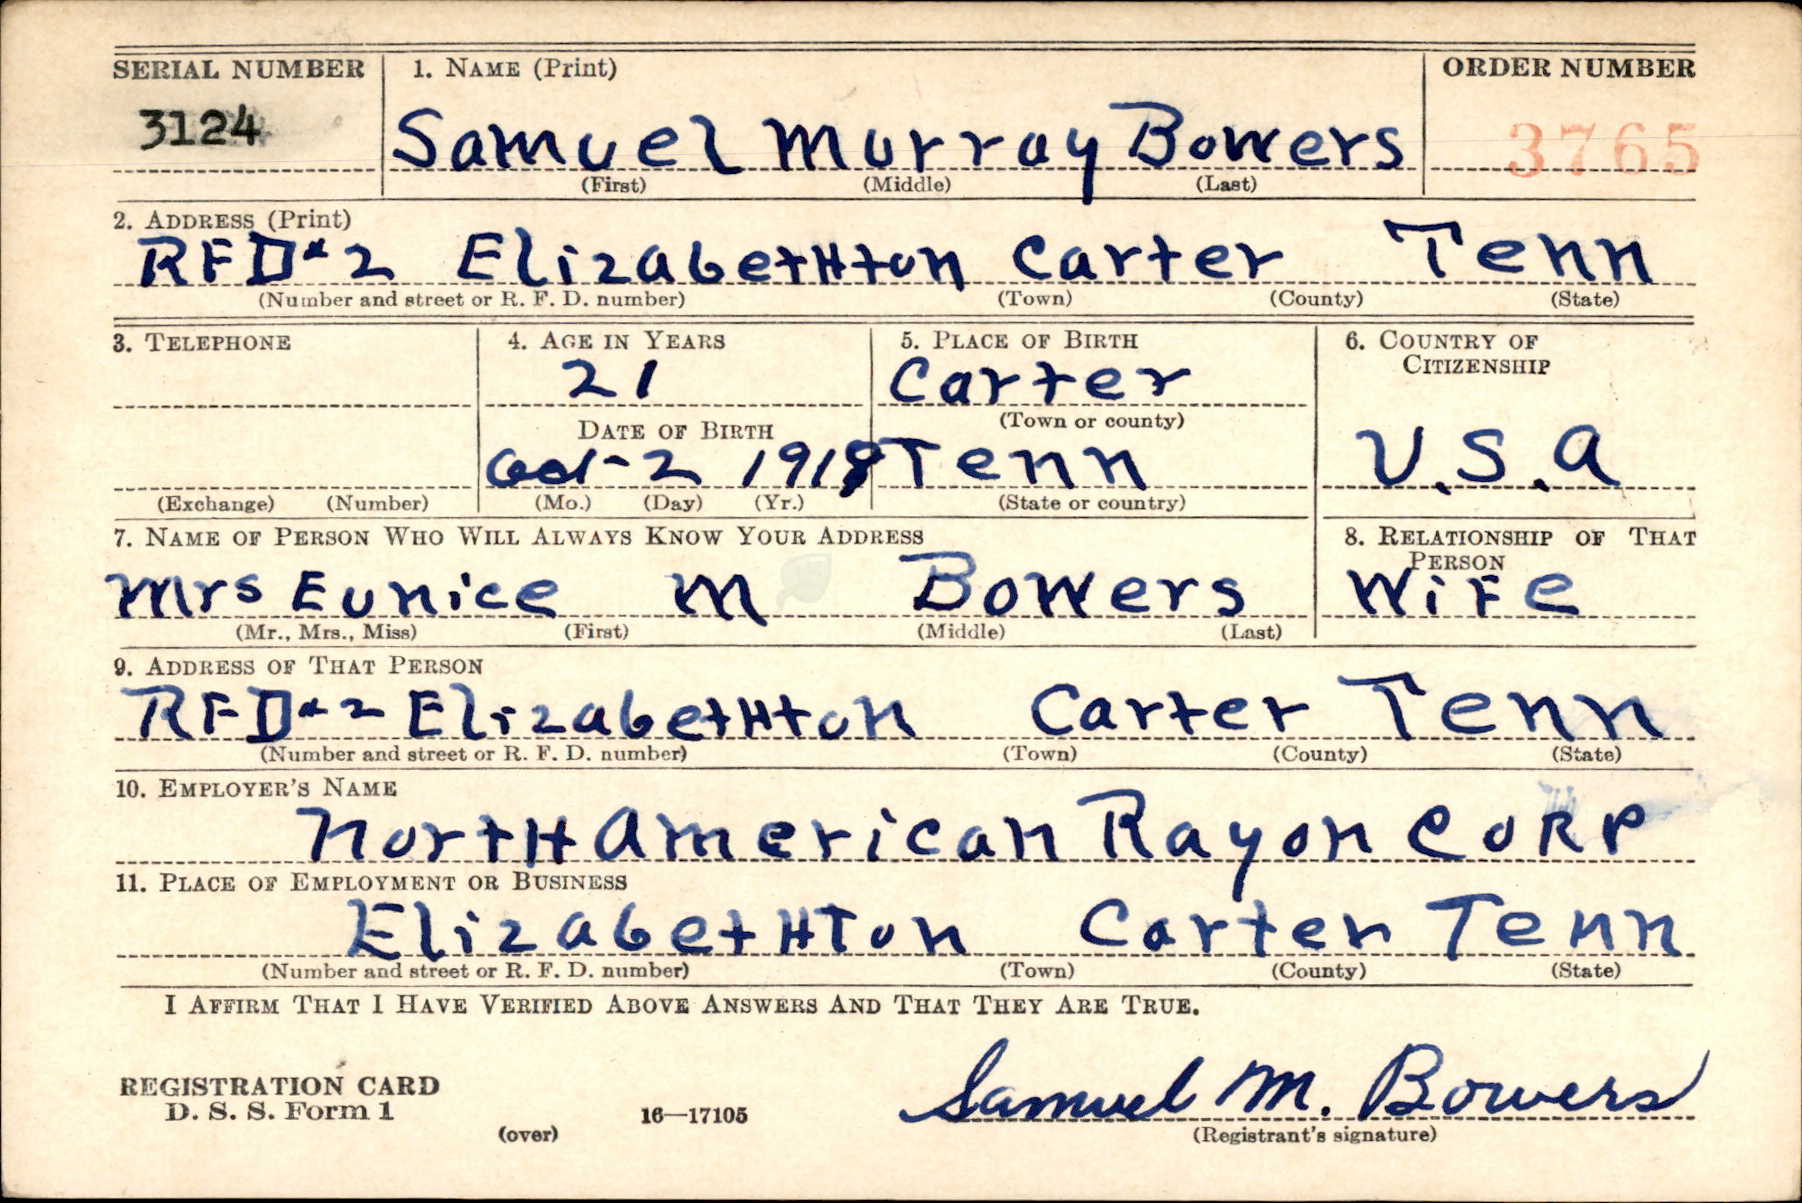 SERIAL NUMBER 1. NAME (Print) ORDER NUMBER
3124 Samuel Murray Bowers 3765
(First) (Middle) (Last)
2. ADDRESS (Print)
RFD#2 Elizabethton Carter Tenn
(Number and street or R. F. D. number) (Town) (County) (State)
3. TELEPHONE 4. AGE IN YEARS 5. PLACE OF BIRTH 6. COUNTRY OF
CITIZENSHIP
21 Carter
(Town or county)
DATE OF BIRTH
Oct-2 1918 Tenn U.S.A
(Exchange) (Number) (Mo.) (Day) (Yr.) (State or country)
7. NAME OF PERSON WHO WILL ALWAYS KNOW YOUR ADDRESS 8. RELATIONSHIP OF THAT
PERSON
Mrs Eunice M Bowers Wife
(Mr., Mrs., Miss) (First) (Middle) (Last)
9. ADDRESS OF THAT PERSON
RFD#2 Elizabethton Carter Tenn
(Number and street or R. F. D. number) (Town) (County) (State)
10. EMPLOYER'S NAME
North American Rayon CORP
11. PLACE OF EMPLOYMENT OR BUSINESS
Elizabethton Carter Tenn
(Number and street or R. F. D. number) (Town) (County) (State)
I AFFIRM THAT I HAVE VERIFIED ABOVE ANSWERS AND THAT THEY ARE TRUE.
REGISTRATION CARD
D. S. S. Form 1 16—17105 Samuel M. Bowers
(over) (Registrant's signature)